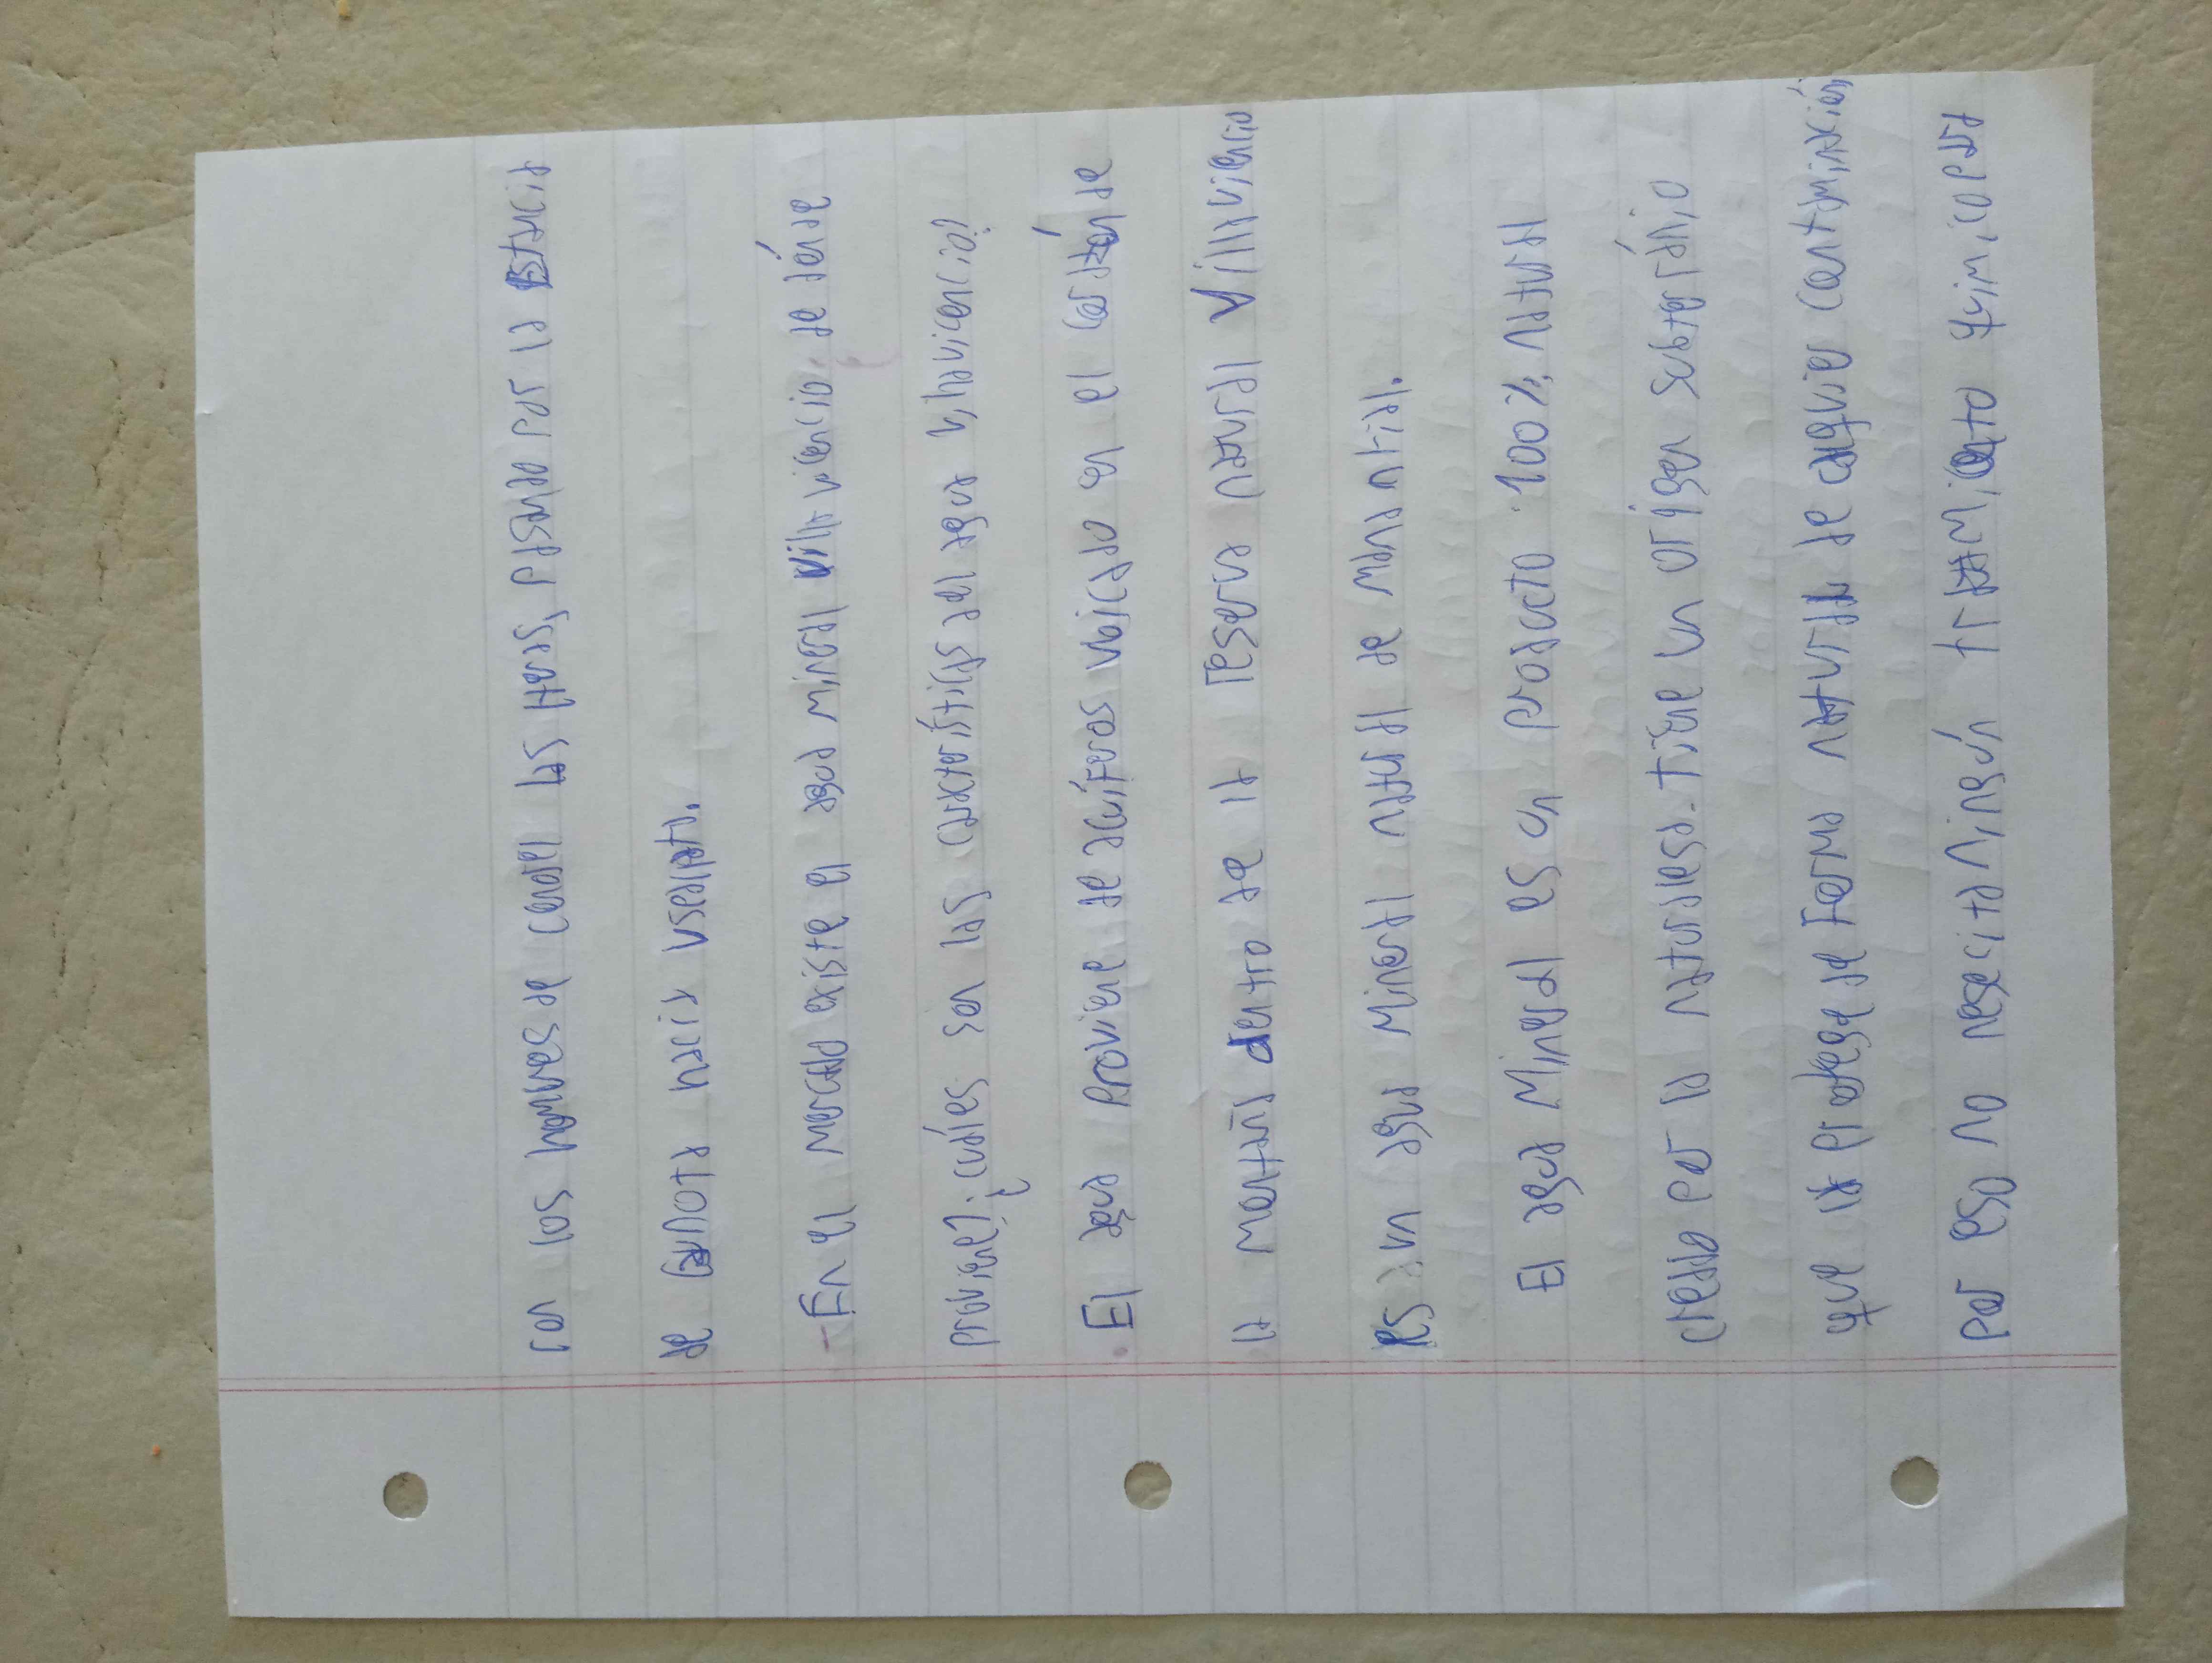 con los de Canota las Heras, pasando por la Estancia
de Canota hacia Uspallata.
- En el mercado existe el agua mineral villavicencio. de dónde
proviene? ¿cuáles son las características del agua villavicencio?
. El agua proviene de acuíferos ubicado en el corazón de
la montaña dentro de la reserva natural Villavicencio
Es un agua Mineral natural de manantial.
El agua Mineral es un producto 100%, natural
creado por la naturaleza. tiene un origen subterránio
que la protege de forma natural de calquier contaminación
por eso no nesecita ningún tratamiento quimico para